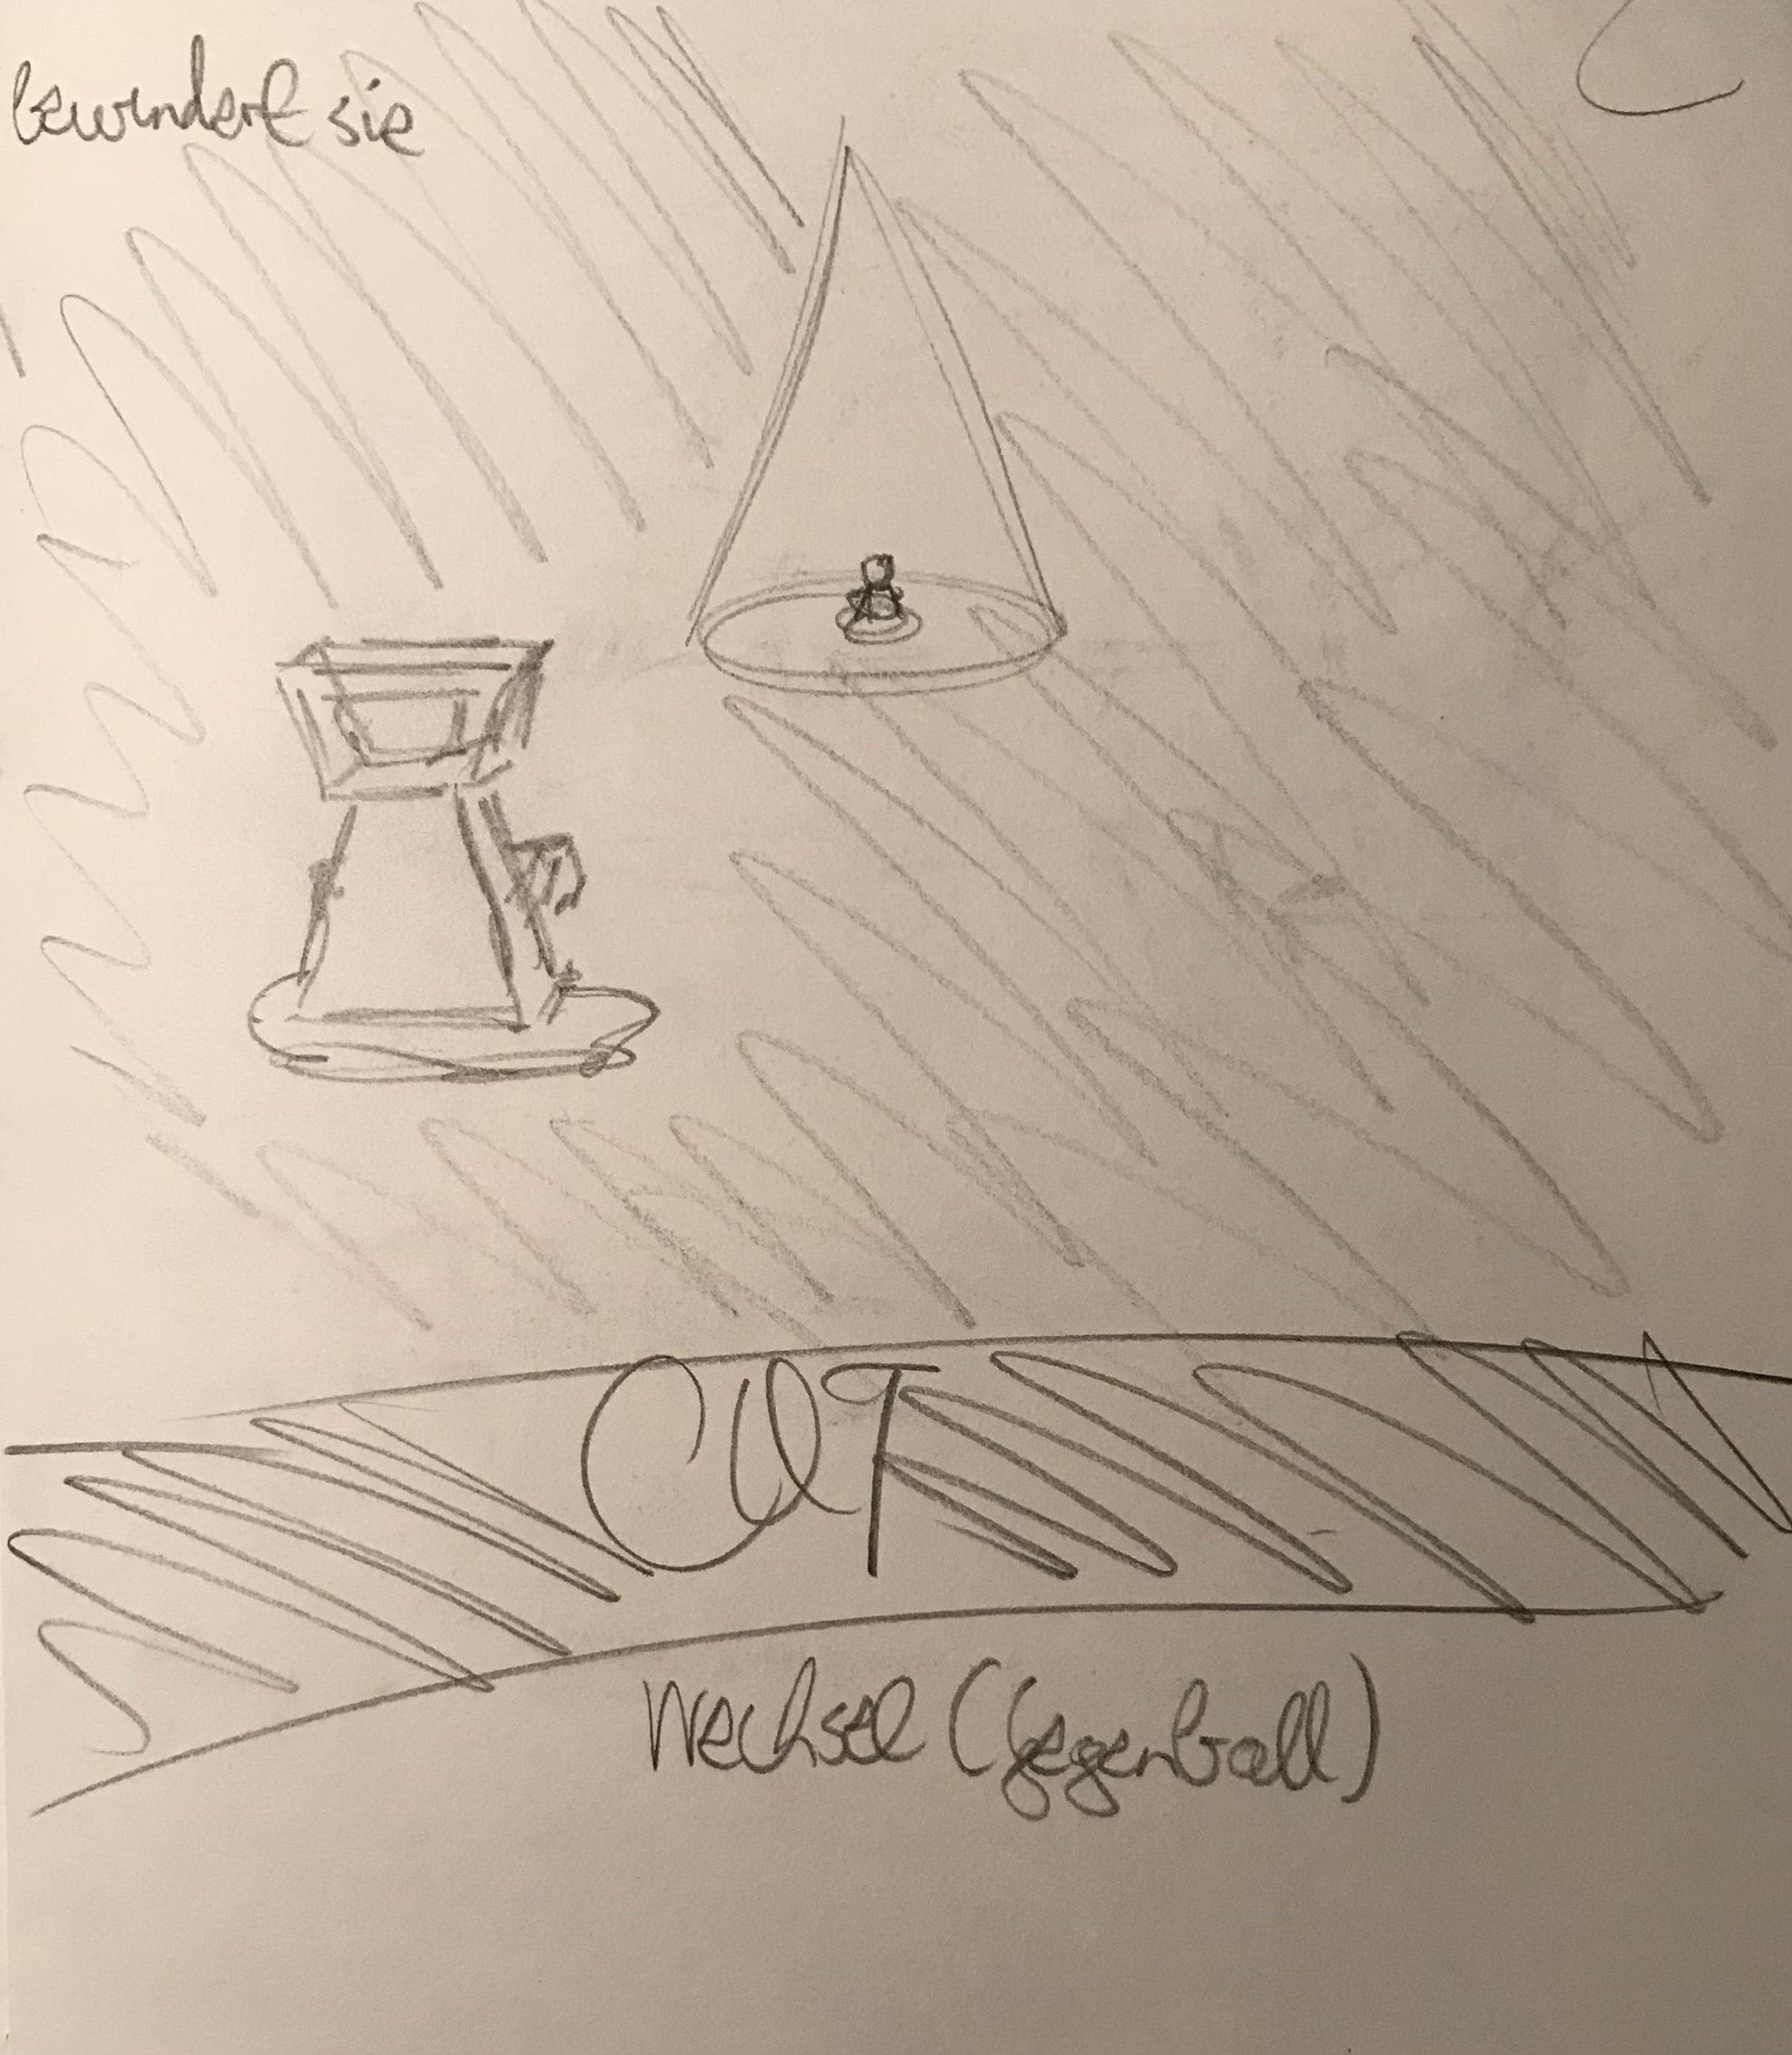 bewundert sie
CUT
Wechsel (Gegenball)